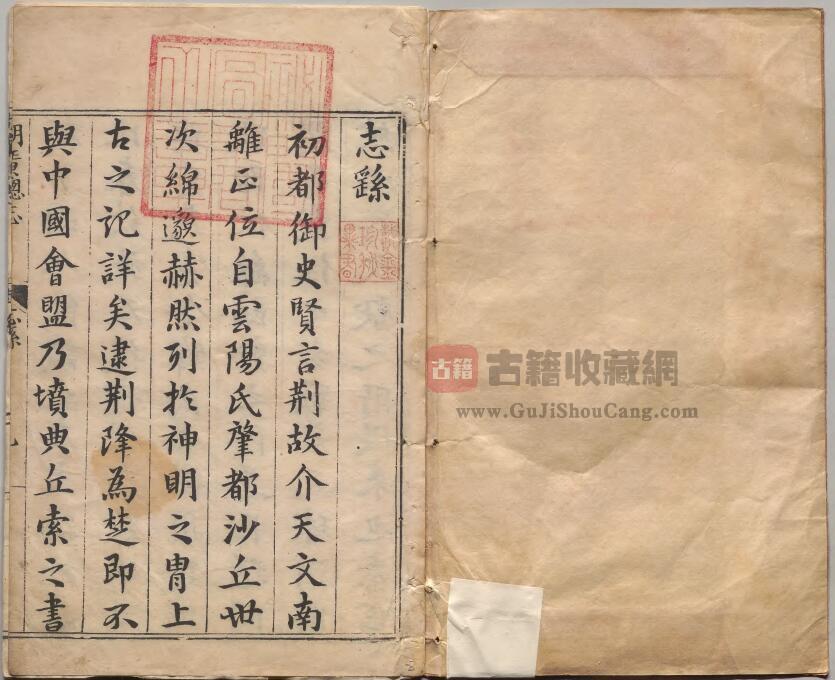 志繇
初都御史賢言荆故介天文南
離正位自雲陽氏肇都沙丘世
次綿邈赫然列於神明之胄上
古之記詳矣逮荆降為楚即不
與中國會盟乃墳典丘索之書
古籍
古籍收藏網
www.GuJiShouCang.com